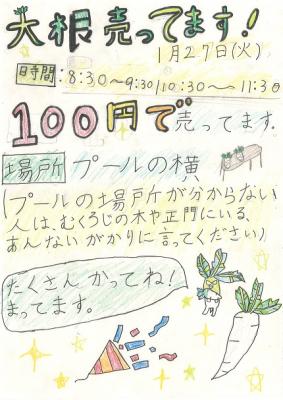 大根売ってます!
1月27日(火)
時間:8:30〜9:30/10:30〜11:30
100円で売ってます。
場所 プールの横
(プールの場所が分からない
人は、むくろじの木や正門にいる、
あんないがかりに言ってください)
たくさんかってね!
まってます。